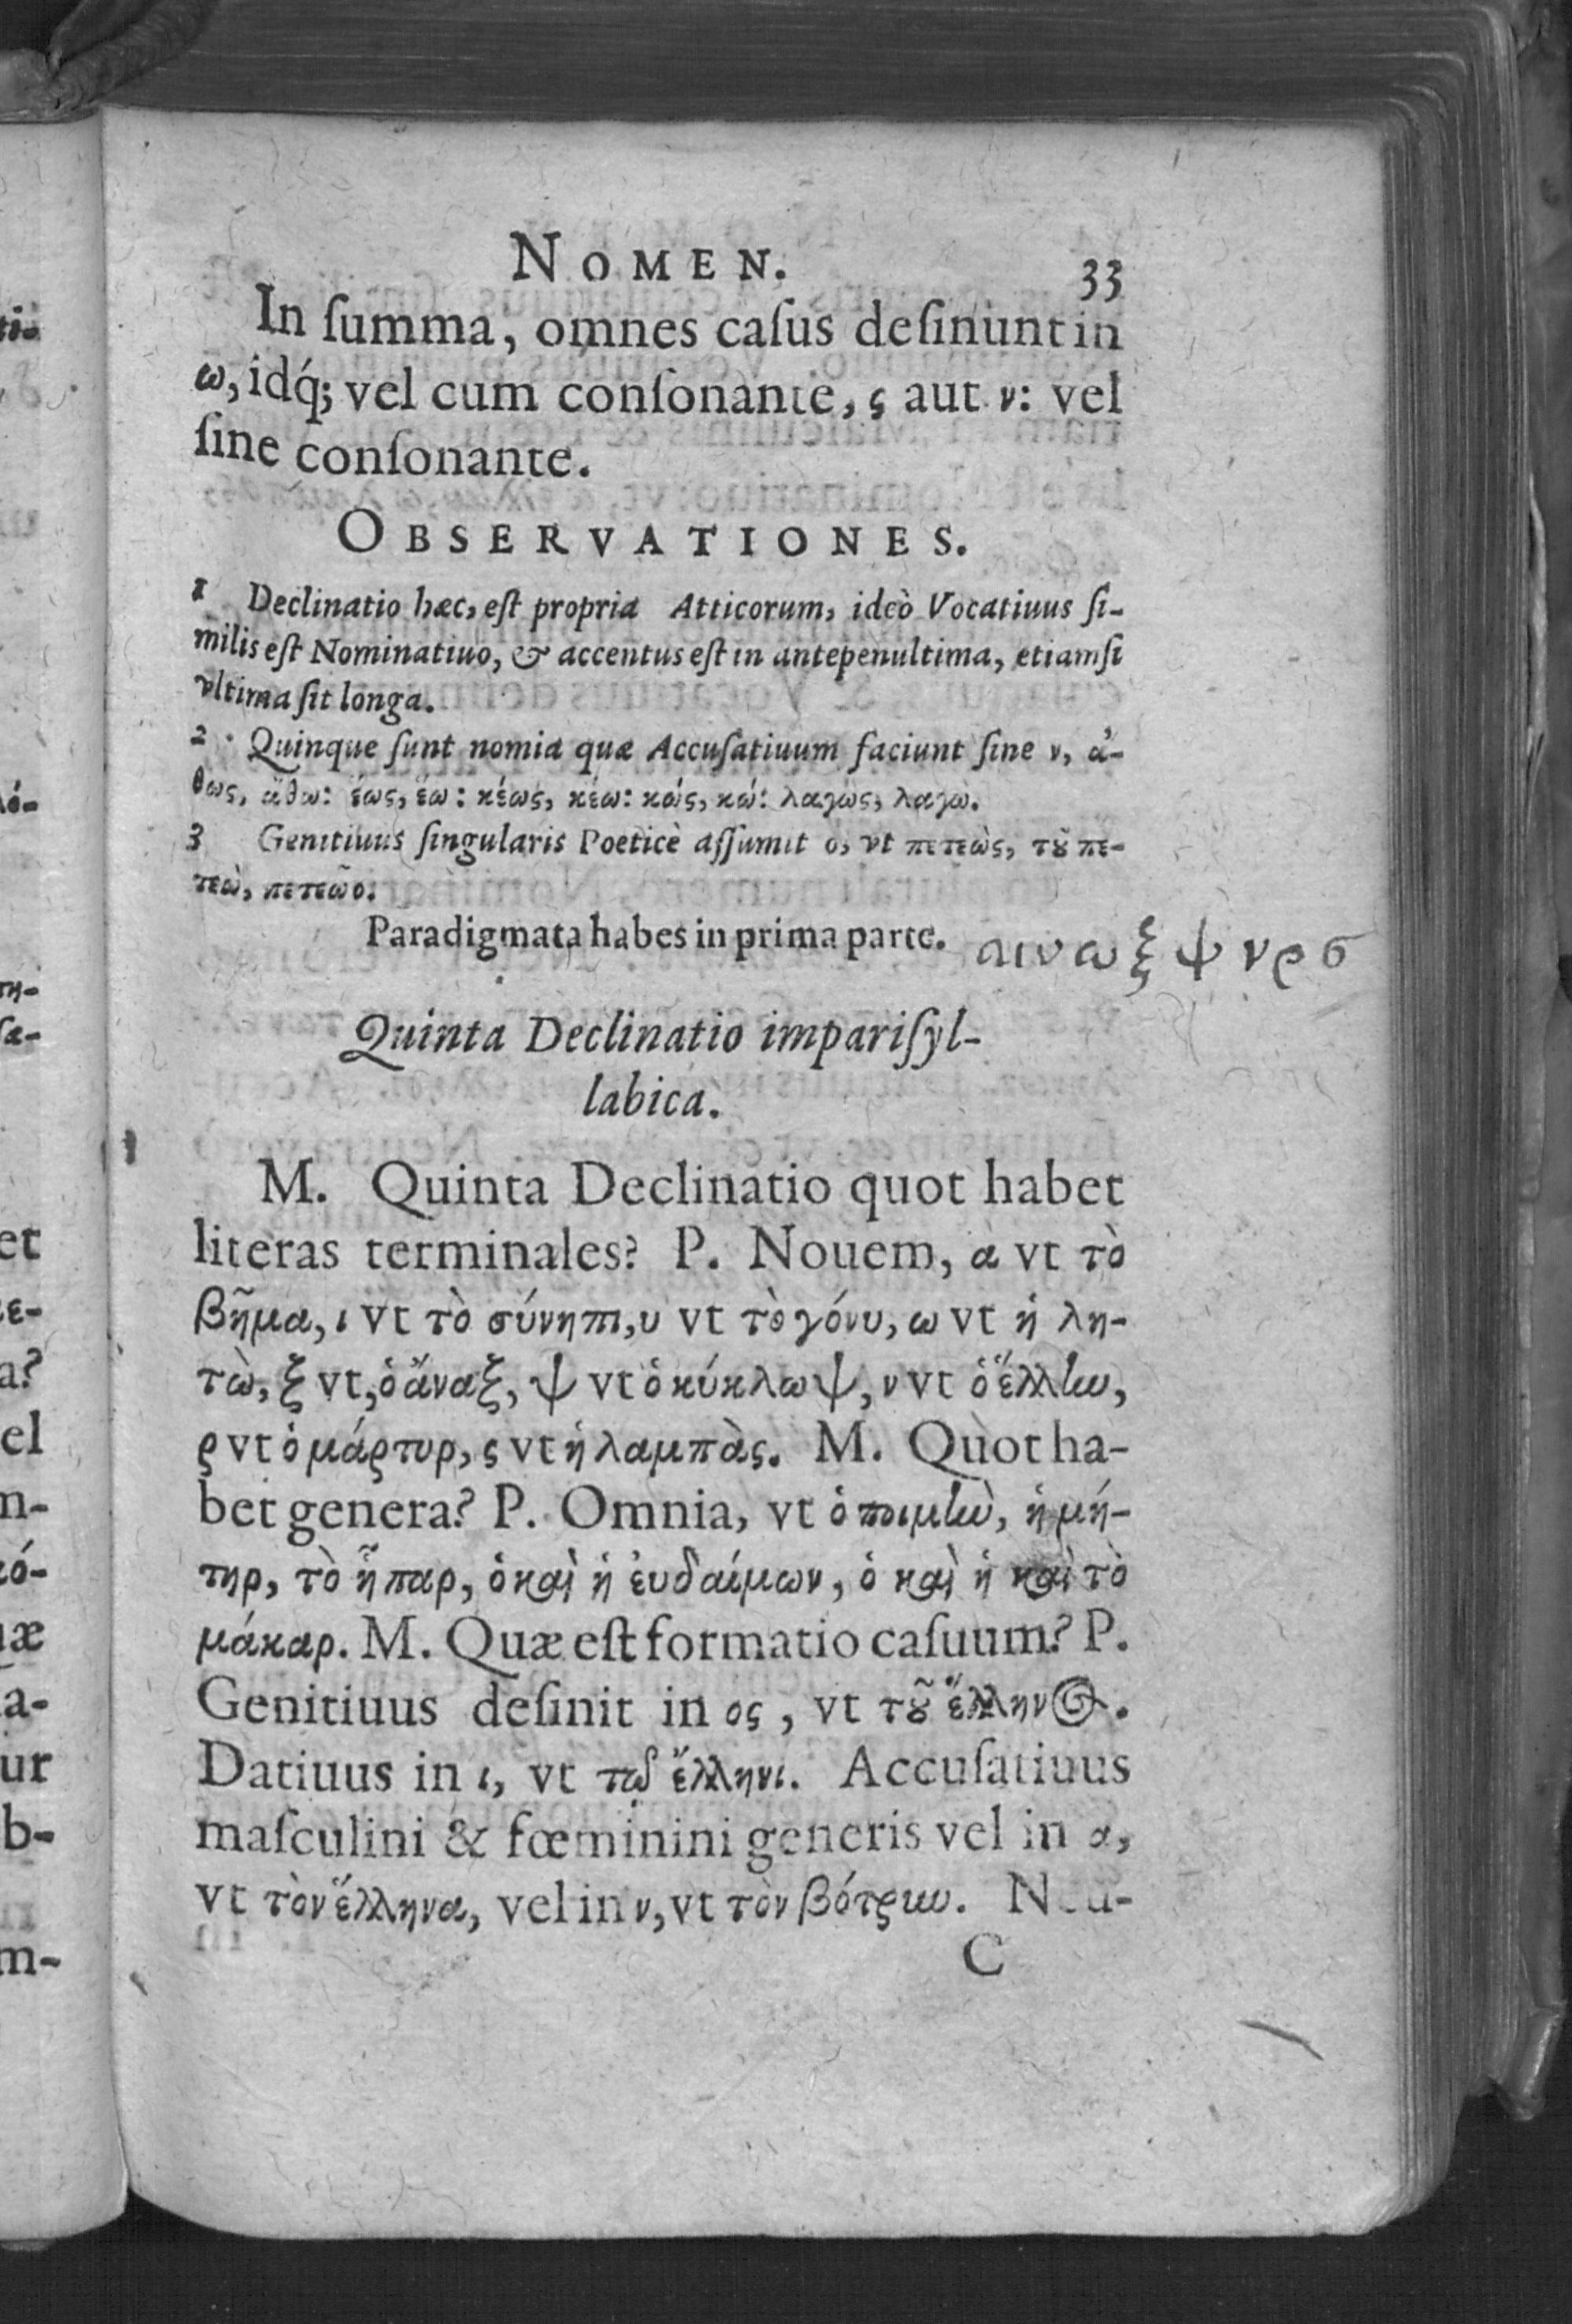 NOMEN. 33
In ſumma, omnes caſus deſinunt in
ω, idq́; vel cum conſonante, ς aut ν: vel
ſine conſonante.
OBSERVATIONES.
1 Declinatio hæc, eſt propria Atticorum, ideò Vocatiuus ſi-
milis eſt Nominatiuo, & accentus eſt in antepenultima, etiamſi
vltima ſit longa.
2 Quinque ſunt nomia quæ Accuſatiuum faciunt ſine ν, ἄ-
θως, ἄθω: ἕως, ἕω: κέως, κέω: κώς, κώ: λαγώς, λαγώ.
3 Genitiuus ſingularis Poeticè aſſumit ο, vt πετεὼς, τοῦ πε-
τεὼ, πετεῶο.
Paradigmata habes in prima parte. αιυωξψνρσ
Quinta Declinatio impariſyl-
labica.
M. Quinta Declinatio quot habet
literas terminales? P. Nouem, α vt τὸ
βῆμα, ι vt τὸ σύνηπι, υ vt τὸ γόνυ, ω vt ἡ λη-
τὼ, ξ vt, ὁ ἄναξ, ψ vt ὁ κύκλωψ, ν vt ὁ ἕλλην,
ρ vt ὁ μάρτυρ, ς vt ἡ λαμπὰς. M. Quòt ha-
bet genera? P. Omnia, vt ὁ ποιμὴν, ἡ μή-
τηρ, τὸ ἧπαρ, ὁ καὶ ἡ ἐυδαίμων, ὁ καὶ ἡ καὶ τὸ
μάκαρ. M. Quæ eſt formatio caſuum? P.
Genitiuus deſinit in ος, vt τοῦ ἕλληνος.
Datiuus in ι, vt τῷ ἕλληνι. Accuſatiuus
maſculini & fœminini generis vel in α,
vt τὸν ἕλληνα, vel in ν, vt τὸν βότρυν. Neu-
C